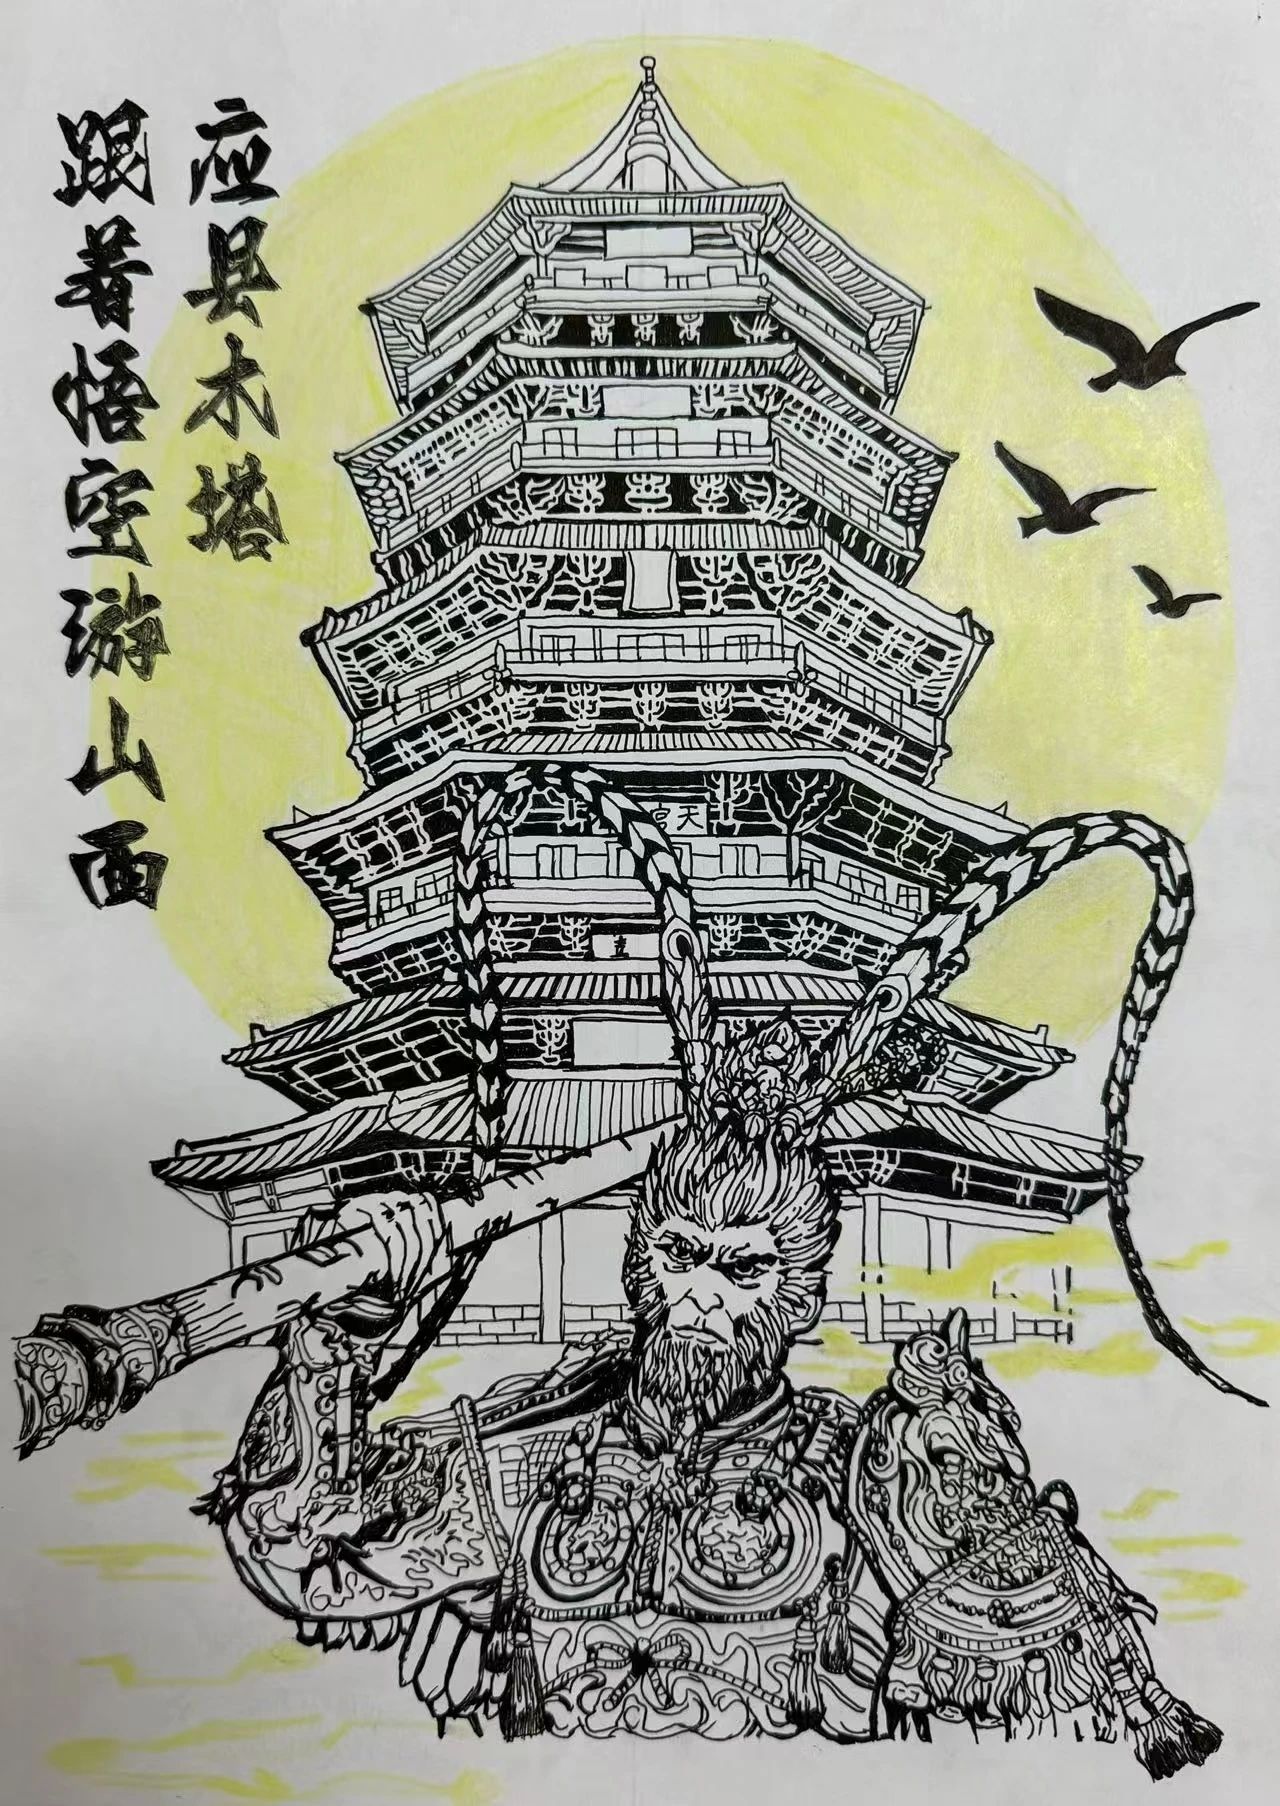 应县木塔
跟着悟空游山西
天宫